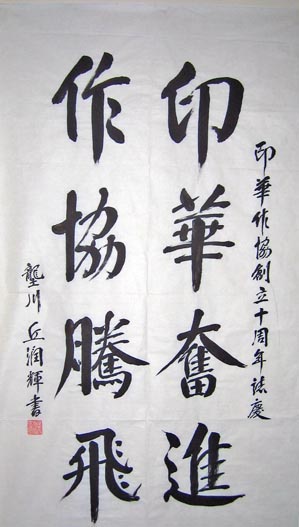 印華作協創立十周年誌慶
印華奮進
作協騰飛
龍川 丘潤輝書